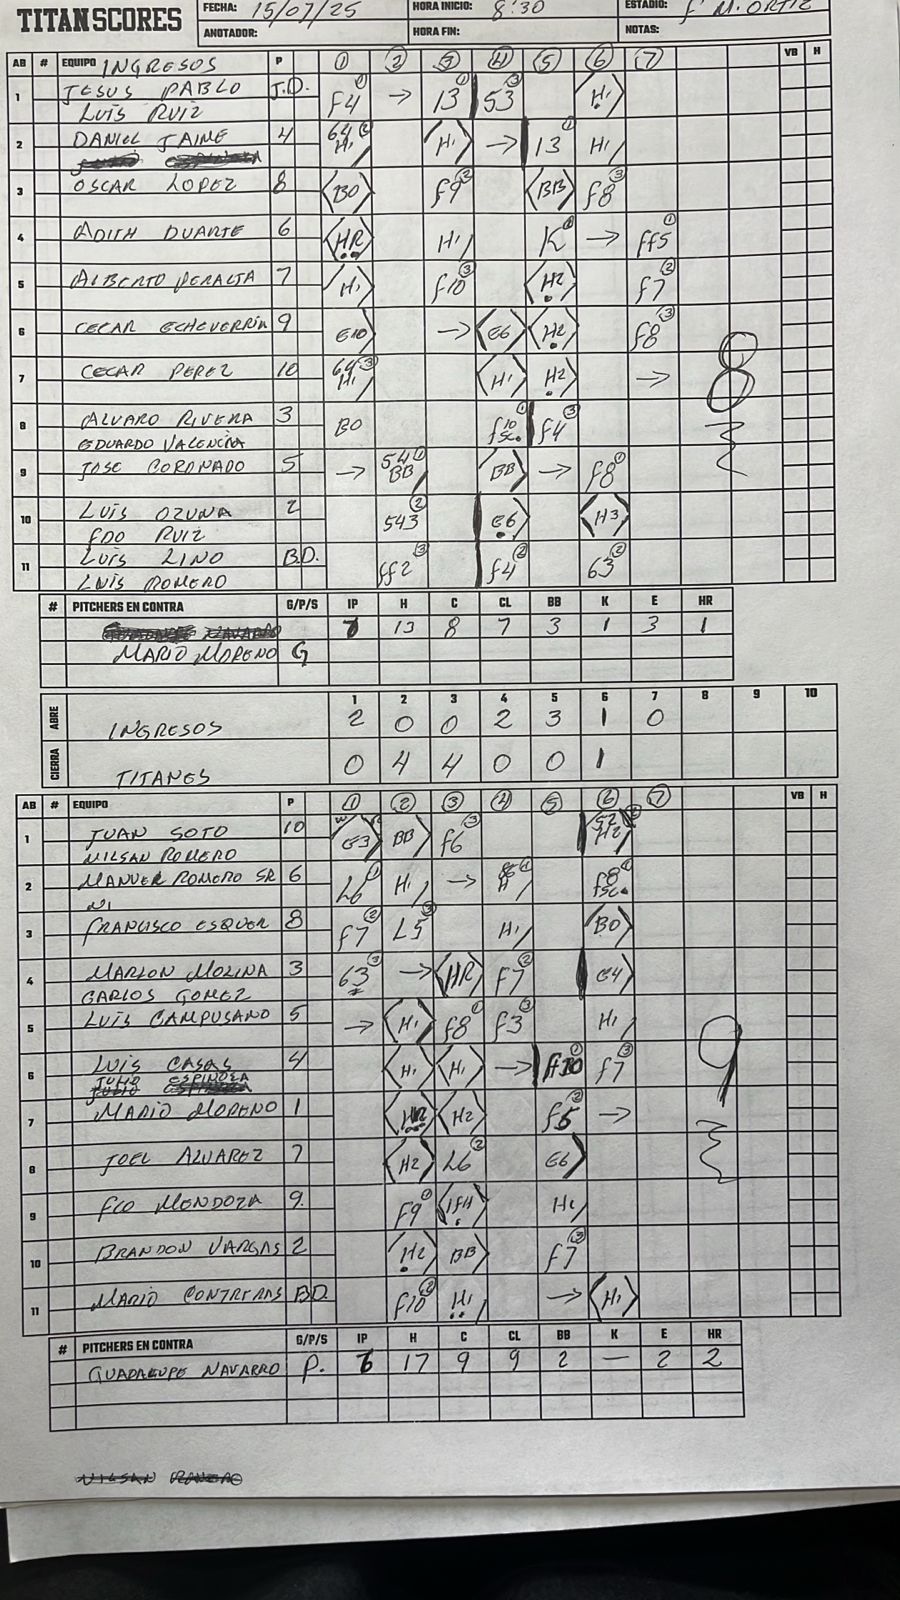 TITAN SCORES
FECHA: 15/07/25 HORA INICIO: 8:30 ESTADIO: F M. ORTIZ
ANOTADOR: HORA FIN: NOTAS:
AB # EQUIPO INGRESOS P 1 2 3 4 5 6 7 VB H
1 JESUS PABLO J.D. F4 → 13 53 H1
LUIS RUIZ
2 DANIEL JAIME 4 64 H1 H1 → 13 H1
3 OSCAR LOPEZ 8 BO F9 BB F8
4 ADITH DUARTE 6 HR H1 K → FF5
5 ALBERTO PERALTA 7 H1 F10 H2 F7
6 CECAR ECHEVERRIA 9 E10 → E6 H2 F8
7 CECAR PEREZ 10 64 H1 H1 H2 →
8
8 ALVARO RIVERA 3 BO F10 FSC F4
EDUARDO VALENCIA
9 JOSE CORONADO 5 → 54 BB BB → F8
10 LUIS OZUNA 2 543 E6 H3
FDO RUIZ
11 LUIS LINO B.D. FF2 F4 63
LUIS ROMERO
# PITCHERS EN CONTRA G/P/S IP H C CL BB K E HR
13 8 7 3 1 3 1
MARIO MORENO G
1 2 3 4 5 6 7 8 9 10
ABRE INGRESOS 2 0 0 2 3 1 0
CIERRA TITANES 0 4 4 0 0 1
AB # EQUIPO P 1 2 3 4 5 6 7 VB H
1 JUAN SOTO 10 E3 BB F6 H2
MILSAN ROMERO
2 MANUER ROMERO SR 6 L6 H1 → H F8 FSC
N1
3 FRANCISCO ESQUER 8 F7 L5 H1 BO
4 MARLON MOLINA 3 63 → HR F7 E4
CARLOS GOMEZ
5 LUIS CAMPUSANO 5 → H1 F8 F3 H1
6 LUIS CASAS 4 H1 H1 → F7
JULIO ESPINOZA
9
7 MARIO MORENO 1 HR H2 F5 →
8 JOEL ALVAREZ 7 H2 L6 E6
9 FCO MENDOZA 9. F9 IFH H1
10 BRANDON VARGAS 2 H2 BB F7
11 MARIO CONTRERAS B.D. F10 H1 → H1
# PITCHERS EN CONTRA G/P/S IP H C CL BB K E HR
GUADALUPE NAVARRO P. 6 17 9 9 2 — 2 2